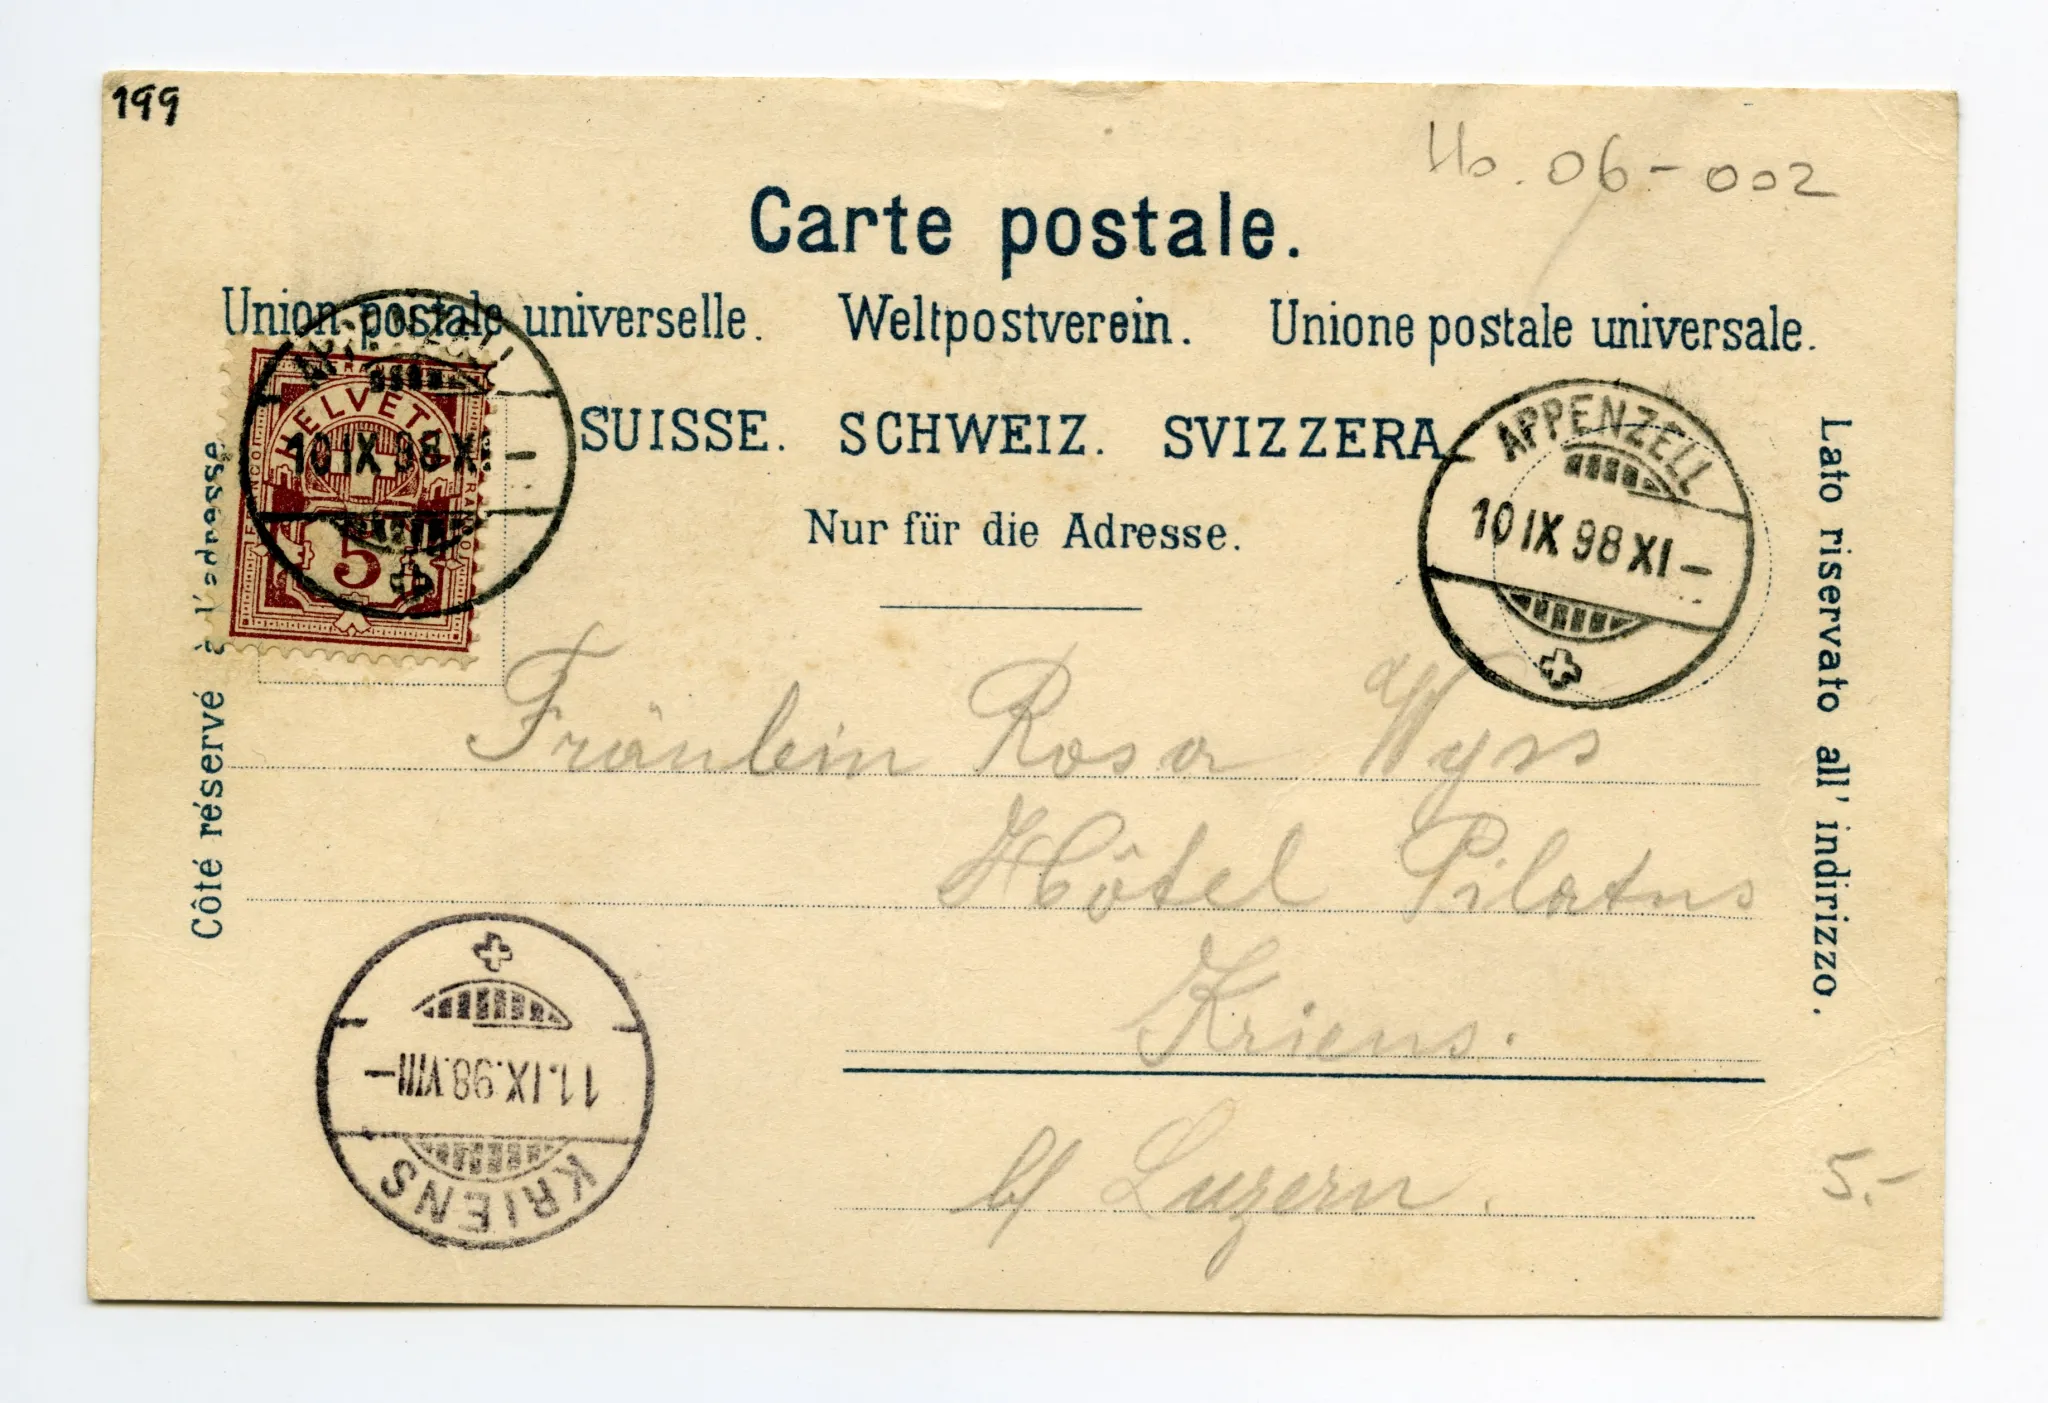 199
Ho. 06-002
Carte postale.
Union postale universelle. Weltpostverein. Unione postale universale.
SUISSE. SCHWEIZ. SVIZZERA
Nur für die Adresse.
Côté réservé à l'adresse
Lato riservato all' indirizzo.
HELVETIA
FRANCO
5
10 IX 98 XI –
APPENZELL
10 IX 98 XI –
Fräulein Rosa Wyss
Hôtel Pilatus
Kriens.
b/ Luzern.
5.-
11.IX.98.VIII –
KRIENS